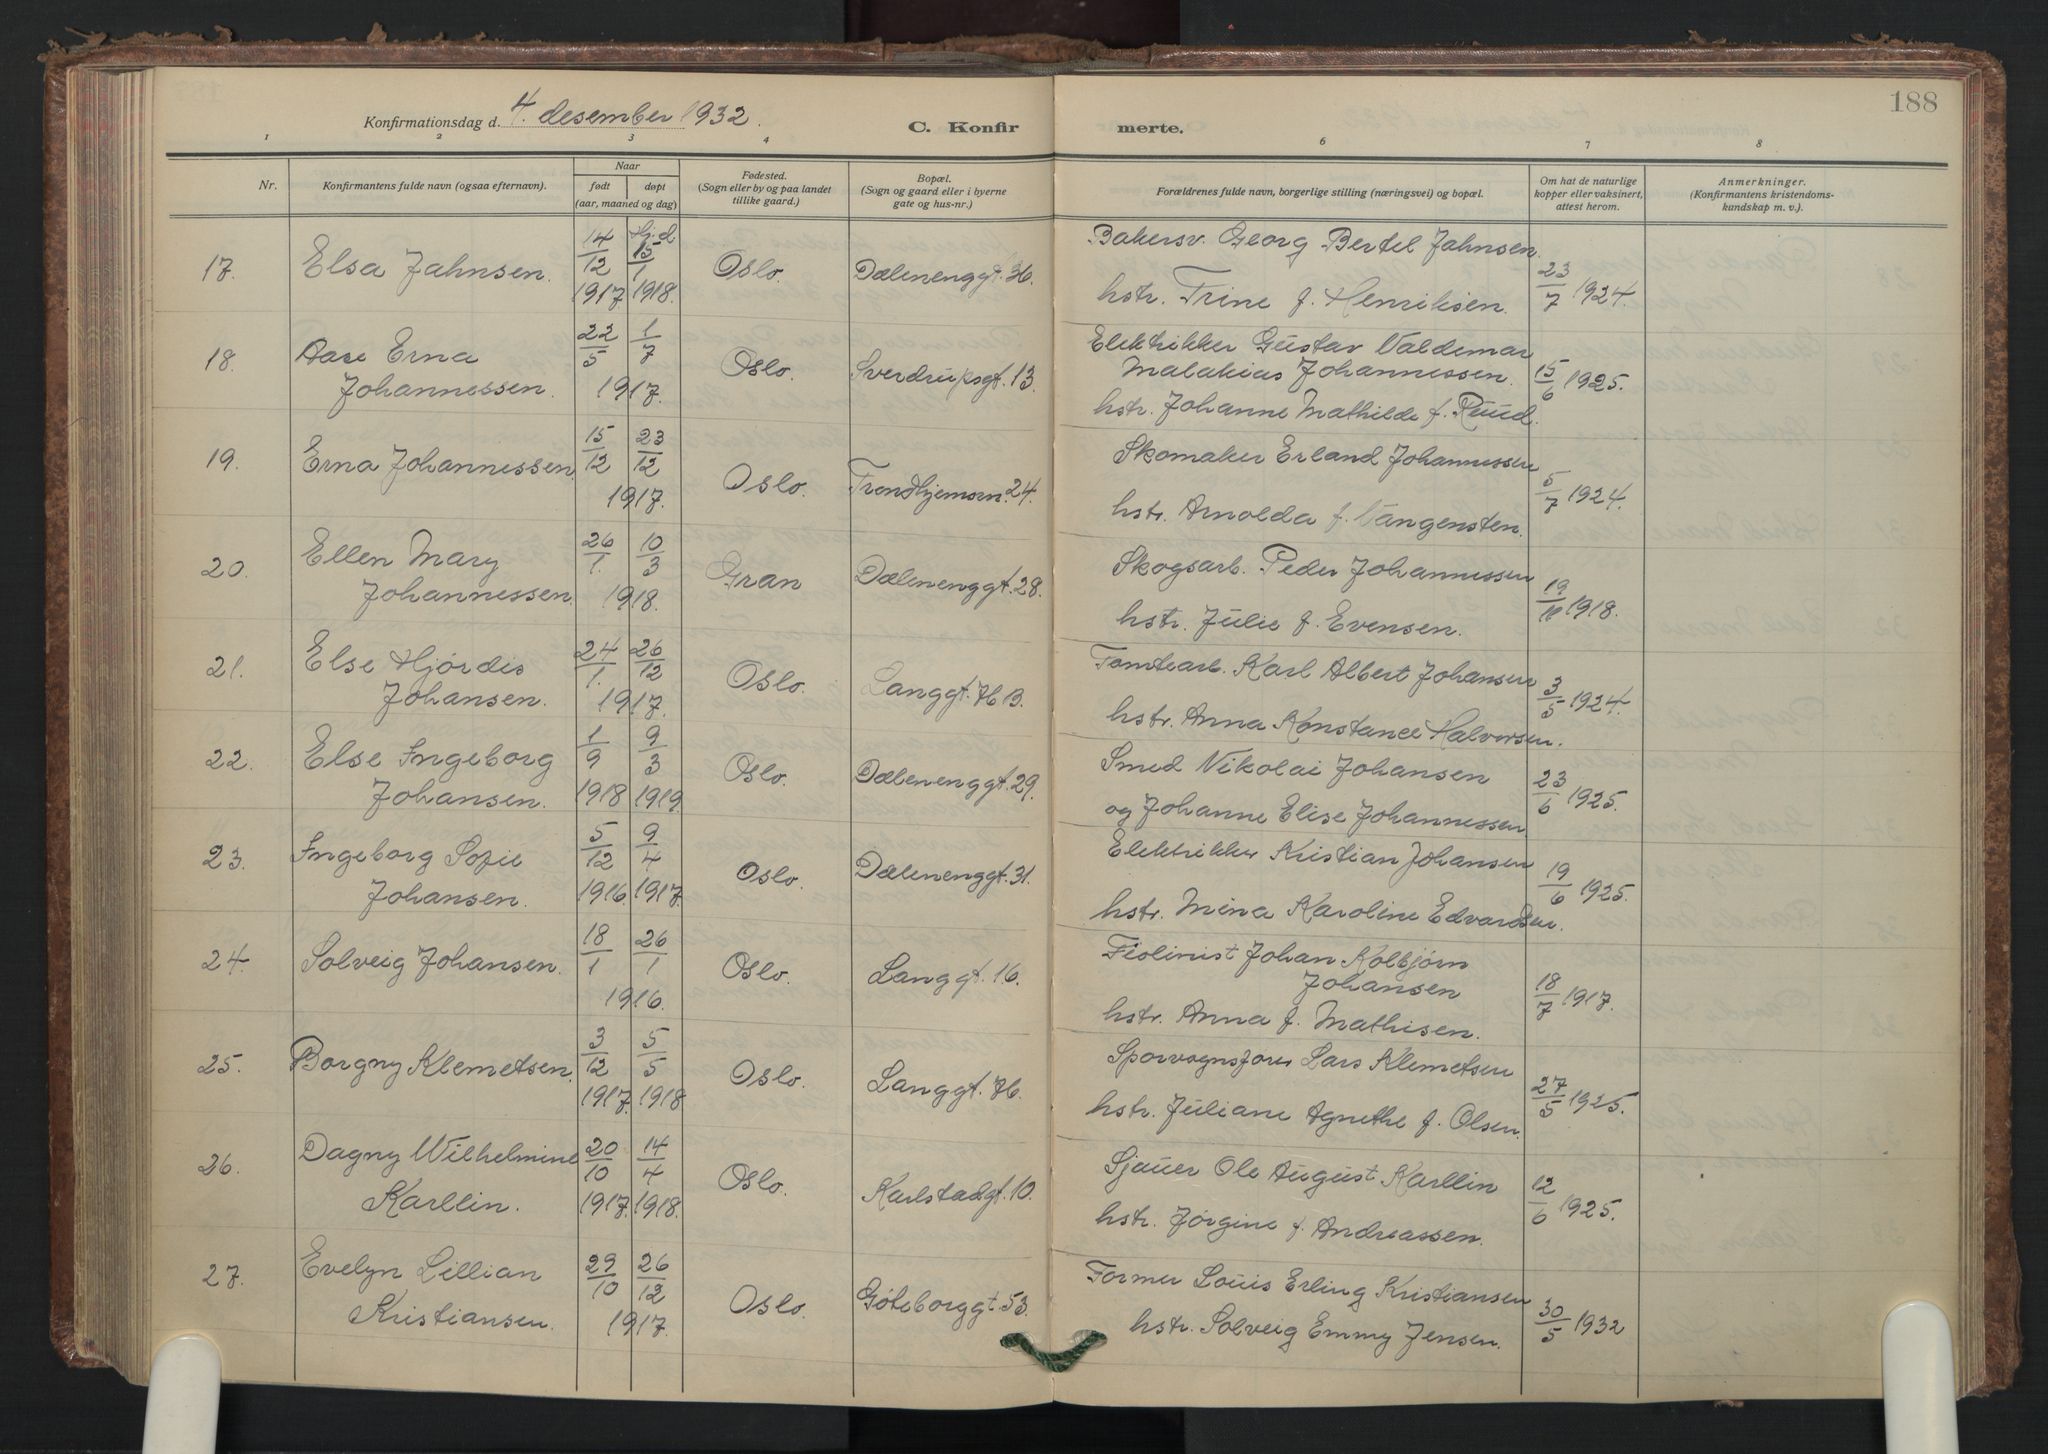 188
Konfirmationsdag d. 4. desember 1932.
C. Konfirmerte.
1 2 3 4 6 7 8
Nr.
Konfirmantens fulde navn (ogsaa efternavn).
Naar
født døpt
(aar, maaned og dag)
Fødested.
(Sogn eller by og paa landet
tillike gaard.)
Bopæl.
(Sogn og gaard eller i byerne
gate og hus-nr.)
Forældrenes fulde navn, borgerlige stilling (næringsvei) og bopæl.
Om hat de naturlige
kopper eller vaksinert,
attest herom.
Anmerkninger.
(Konfirmantens kristendoms-
kundskap m. v.).
17. Elsa Jahnsen. 14/12 1917. Hj.d. 15/1 1918. Oslo. Dælenenggt. 36. Bakersv. Georg Bertel Jahnsen
hstr. Trine f. Henriksen. 23/7 1924.
18. Aase Erna
Johannessen. 22/5 1/7 1917. Oslo. Sverdrupsgt. 13. Elektrikker Gustav Valdemar
Malakias Johannessen.
hstr. Johanne Mathilde f. Ruud. 15/6 1925.
19. Erna Johannessen 15/12 23/12 1917. Oslo. Trondhjemsvn. 24. Skomaker Erland Johannessen
hstr. Arnolda f. Vangensten. 5/7 1924.
20. Ellen Mary
Johannessen 26/1. 10/3 1918. Gran Dælenenggt. 28. Skogsarb. Peder Johannessen
hstr. Julie f. Evensen. 19/10 1918.
21. Else Hjørdis
Johansen. 24/1. 26/12 1917. Oslo. Langgt. B. Tomtearb. Karl Albert Johansen
hstr. Anna Konstance Halvorsen. 3/5 1924.
22. Else Ingeborg
Johansen. 1/9 1918 9/3 1919. Oslo. Dælenenggt. 29. Smed Nikolai Johansen
og Johanne Elise Johannessen 23/6 1925.
23. Ingeborg Sofie
Johansen. 5/12 1916. 9/4 1917. Oslo. Dælenenggt. 31. Elektrikker Kristian Johansen
hstr. Mina Karoline Edvardsen. 19/6 1925.
24. Solveig Johansen. 18/1 26/1 1916. Oslo. Langgt. 16. Fiolinist Johan Kolbjørn
Johansen
hstr. Anna f. Mathisen. 18/7 1917.
25. Borgny Klemetsen. 3/12 1917. 5/5 1918 Oslo. Langgt. Sporvognsfører Lars Klemetsen
hstr. Juliane Agnethe f. Olsen. 27/5 1925.
26. Dagny Wilhelmine
Karllin. 20/10 1917. 14/4 1918. Oslo. Karlstadgt. 10. Sjauer Ole August Karllin
hstr. Jørgine f. Andreassen. 12/6 1925.
27. Evelyn Lillian
Kristiansen. 29/10 26/12 1917. Oslo. Göteborggt. 53. Former Louis Erling Kristiansen
hstr. Solveig Emmy Jensen. 30/5 1932